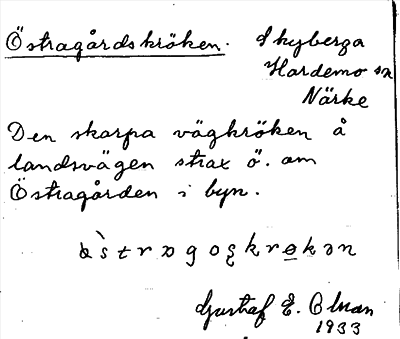 Östragårdskröken. Skyberga
Hardemo sn
Närke
Den skarpa vägkröken å
landsvägen strax ö. om
Östragården i byn.
Gustaf E. Olsson
1933